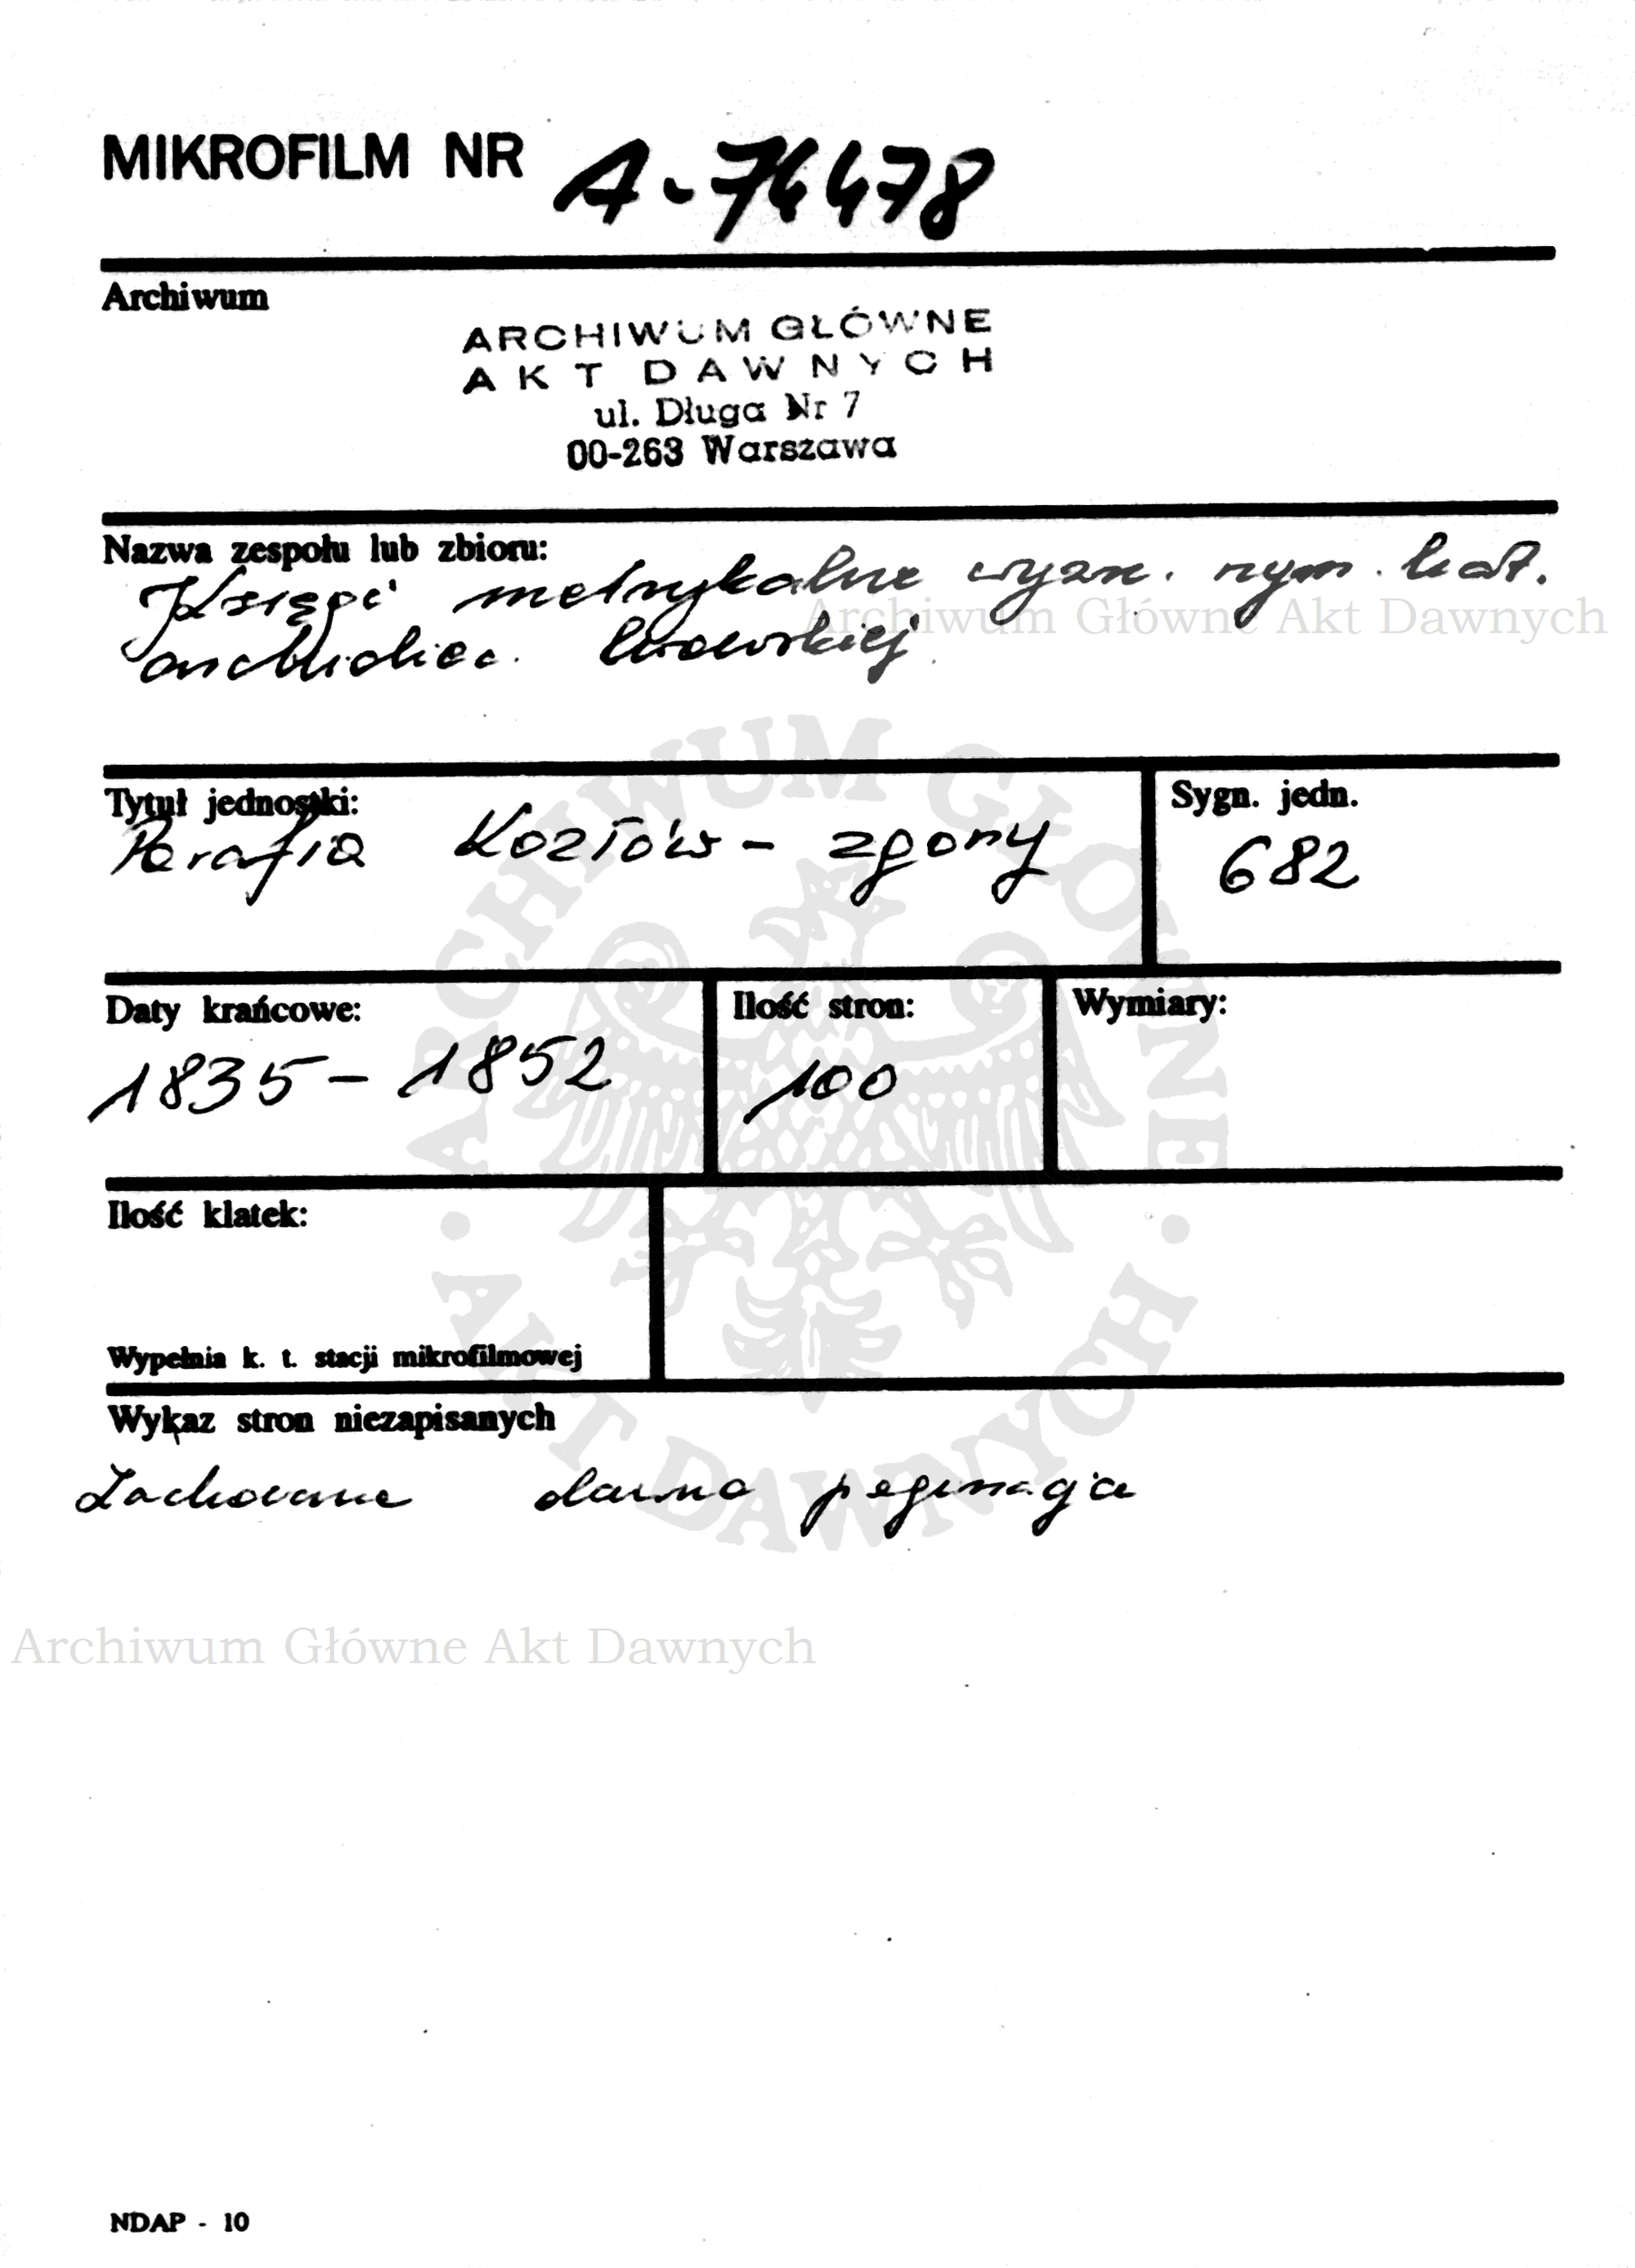 MIKROFILM NR A-74478
Archiwum
ARCHIWUM GŁÓWNE
AKT DAWNYCH
ul. Długa Nr 7
00-263 Warszawa
Nazwa zespołu lub zbioru:
Księgi metrykalne wyzn. rzym. kat.
Archiwum Główne Akt Dawnych
archidiec. lwowskiej
Tytuł jednostki:
Parafia Kozłów - zgony
Sygn. jedn.
682
Daty krańcowe:
1835 - 1852
Ilość stron:
100
Wymiary:
Ilość klatek:
Wypełnia k. t. stacji mikrofilmowej
Wykaz stron niezapisanych
Zachowano dawną paginację
ARCHIWUM GŁÓWNE · AKT DAWNYCH ·
Archiwum Główne Akt Dawnych
NDAP - 10